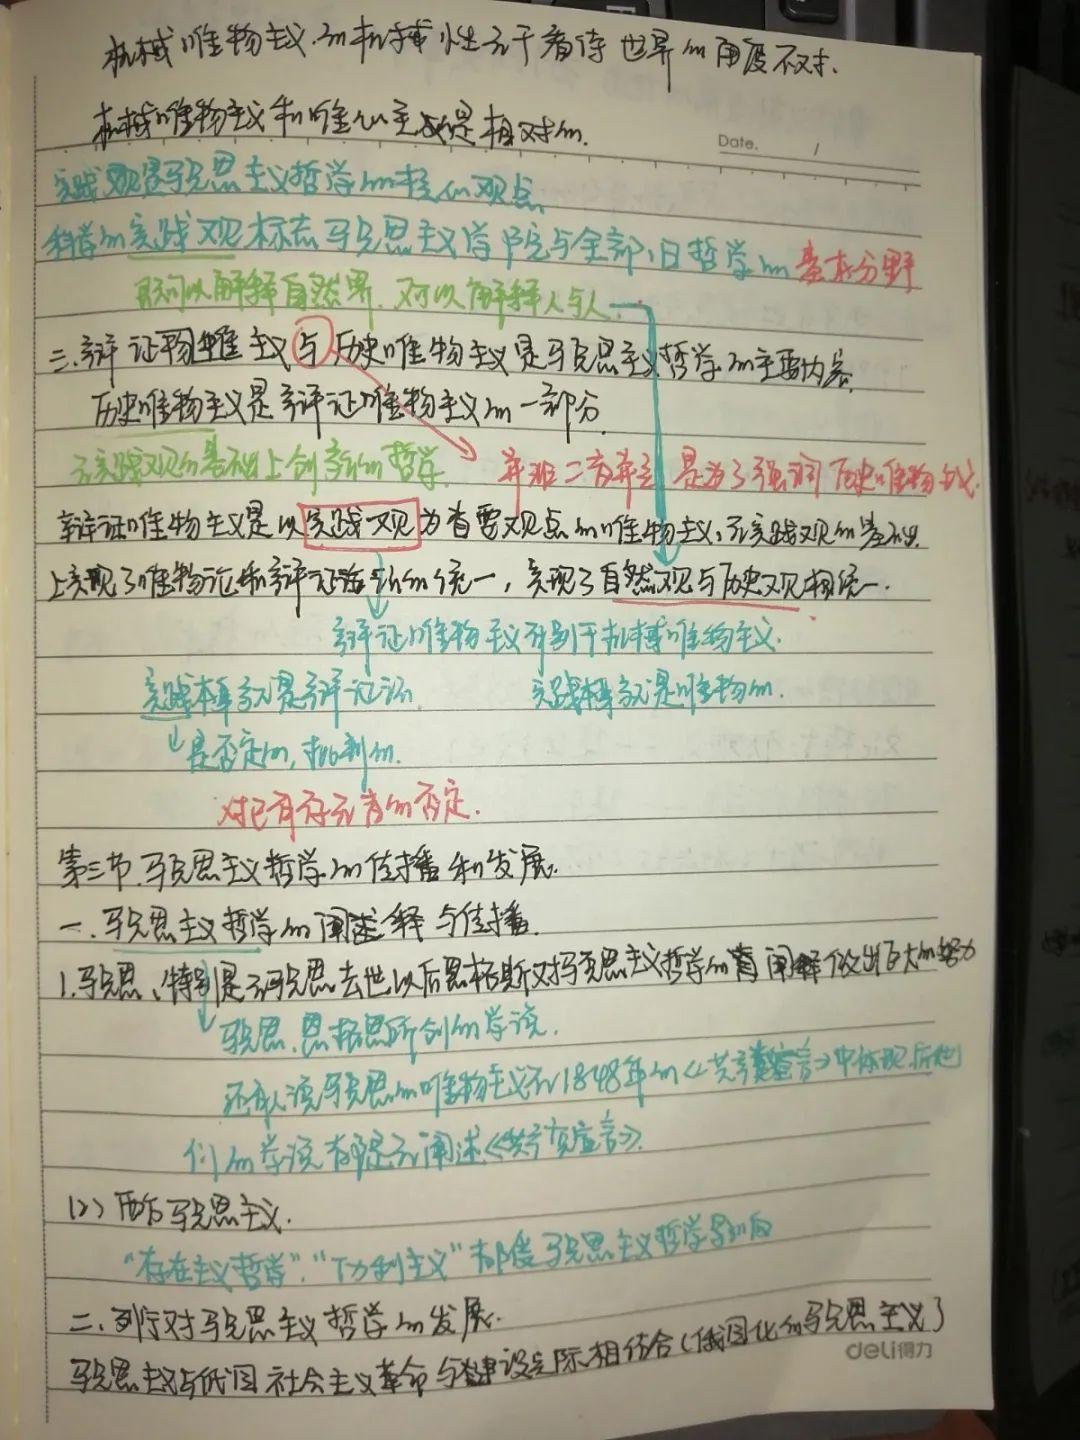 机械唯物主义的机械性在于看待世界的角度不对.
机械唯物主义和唯心主义是相对的.
Date. /
实践观是马克思主义哲学的核心观点
科学的实践观标志马克思主义学院与全部旧哲学的基本分野
既可以解释自然界.又可以解释人与人.
三.辩证唯物主义与历史唯物主义是马克思主义哲学的主要内容.
历史唯物主义是辩证唯物主义的一部分.
在实践观的基础上创新的哲学.
并非二者并立 是为了强调历史唯物主义.
辩证唯物主义是以实践观为首要观点的唯物主义,在实践观的基础
上实现了唯物论和辩证法的统一,实现了自然观与历史观相统一.
辩证唯物主义有别于机械唯物主义.
实践本身就是辩证法. 实践本身就是唯物的.
是否定的,批判的.
对已有存在者的否定.
第三节.马克思主义哲学的传播和发展.
一.马克思主义哲学的阐释与传播.
1.马克思、特别是在马克思去世以后恩格斯对马克思主义哲学的阐释做出巨大的努力
马克思.恩格思所创的学说.
还有人说马克思的唯物主义在1848年的《共产党宣言》中体现,后他
们的学说都是在阐述《共产党宣言》.
(2) 西方马克思主义.
“存在主义哲学”.“功利主义”都受马克思主义哲学影响
二.列宁对马克思主义哲学的发展.
马克思主义与俄国社会主义革命与建设实际相结合(俄国化的马克思主义)
deli得力